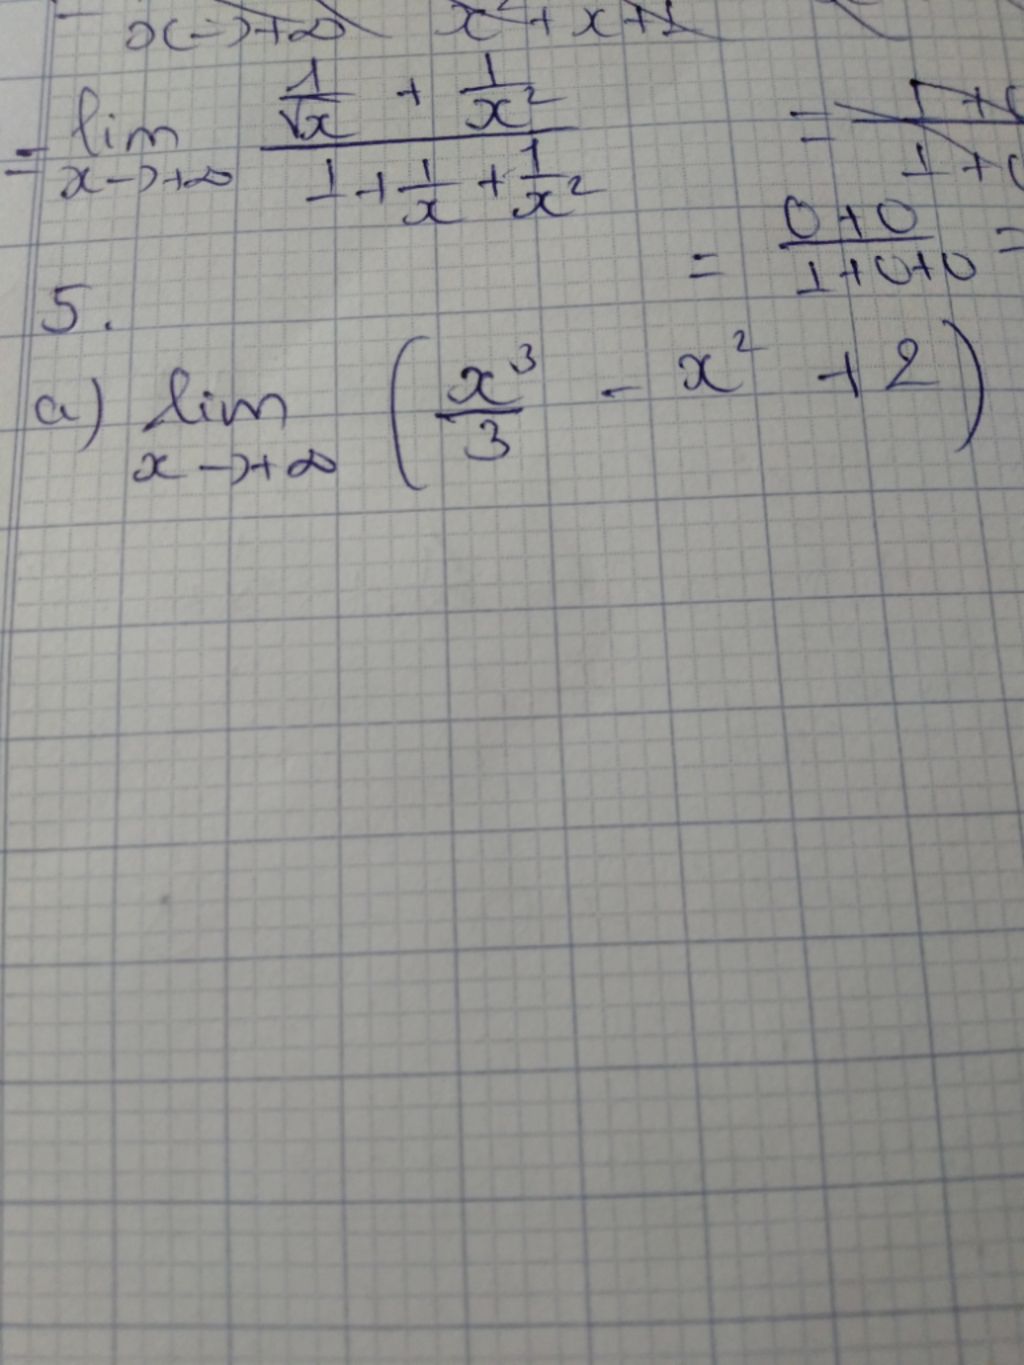 x→+∞ x² + x + 1
= lim x→+∞ (1/√x + 1/x²) / (1 + 1/x + 1/x²) =
= (0 + 0) / (1 + 0 + 0) =
5.
a) lim x→+∞ (x³/3 - x² + 2)